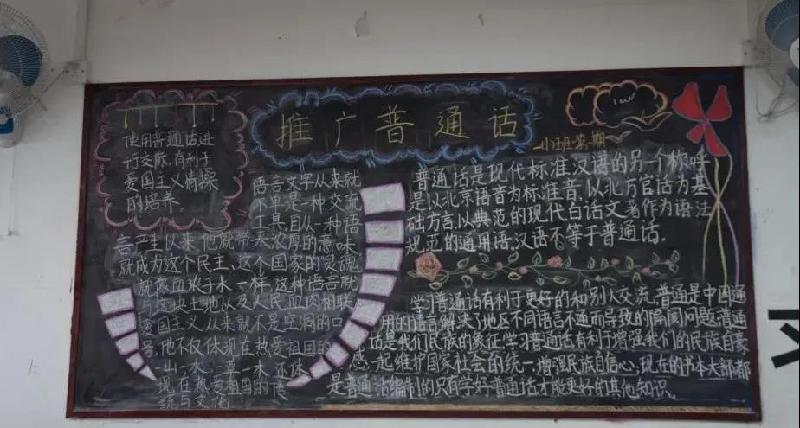 推广普通话
使用普通话进
行交流,有利于
爱国主义情操
的培养
语言文字从来就
不单是一种交流
工具自从一种语
言产生以来,他就带着浓厚的意味,
就成为这个民主,这个国家的灵魂,
就像血浓于水一样这种语言就
爱国主义从来就不是空洞的口
号,他不仅体现在热爱祖国的
山一水,一草一木,还体
现在热爱祖国的传
统与文化
普通话是现代标准汉语的另一个称呼
是以北京语音为标准音,以北方官话为基
础方言,以典范的现代白话文著作为语法
规范的通用语,汉语不等于普通话.
学习普通话有利于更好的和别人交流,普通是中国通
用的语言解决了地区不同语言不通而导致的隔阂问题,普通
话是我们民族的象征学习普通话有利于增强我们的民族自豪
感,一起维护国家社会的统一,增强民族自信心,现在的书本大部都
是普通话编制的只有学好普通话才能更好的其他知识.